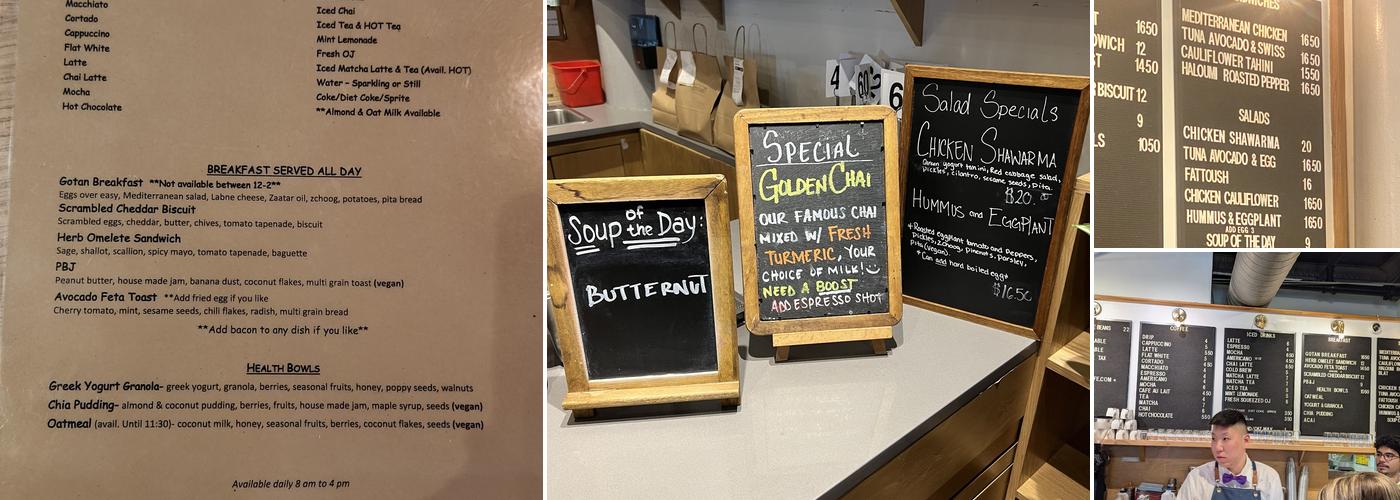 Macchiato
Cortado
Cappuccino
Flat White
Latte
Chai Latte
Mocha
Hot Chocolate
Iced Chai
Iced Tea & HOT Tea
Mint Lemonade
Fresh OJ
Iced Matcha Latte & Tea (Avail. HOT)
Water – Sparkling or Still
Coke/Diet Coke/Sprite
**Almond & Oat Milk Available
BREAKFAST SERVED ALL DAY
Gotan Breakfast **Not available between 12-2**
Eggs over easy, Mediterranean salad, Labne cheese, Zaatar oil, zchoog, potatoes, pita bread
Scrambled Cheddar Biscuit
Scrambled eggs, cheddar, butter, chives, tomato tapenade, biscuit
Herb Omelete Sandwich
Sage, shallot, scallion, spicy mayo, tomato tapenade, baguette
PBJ
Peanut butter, house made jam, banana dust, coconut flakes, multi grain toast (vegan)
Avocado Feta Toast **Add fried egg if you like
Cherry tomato, mint, sesame seeds, chili flakes, radish, multi grain bread
**Add bacon to any dish if you like**
HEALTH BOWLS
Greek Yogurt Granola- greek yogurt, granola, berries, seasonal fruits, honey, poppy seeds, walnuts
Chia Pudding- almond & coconut pudding, berries, fruits, house made jam, maple syrup, seeds (vegan)
Oatmeal (avail. Until 11:30)- coconut milk, honey, seasonal fruits, berries, coconut flakes, seeds (vegan)
Available daily 8 am to 4 pm
Soup of the Day:
BUTTERNUT
4
60
6
SPECIAL
GOLDEN CHAI
OUR FAMOUS CHAI
MIXED W/ FRESH
TURMERIC, YOUR
CHOICE OF MILK!
NEED A BOOST
ADD ESPRESSO SHOT
Salad Specials
CHICKEN SHAWARMA
Green yogurt tahini, Red cabbage salad,
pickles, cilantro, sesame seeds, pita.
$20.00
HUMMUS and EGGPLANT
*Roasted eggplant tomato and peppers,
pickles, zchoog, pinenuts, parsley,
pita (vegan).
*Can add hard boiled egg*
$16.50
T 1650
WICH 12
ST 1450
BISCUIT 12
9
LS 1050
SANDWICHES
MEDITERRANEAN CHICKEN 1650
TUNA AVOCADO & SWISS 1650
CAULIFLOWER TAHINI 1550
HALOUMI ROASTED PEPPER 1650
SALADS
CHICKEN SHAWARMA 20
TUNA AVOCADO & EGG 1650
FATTOUSH 16
CHICKEN CAULIFLOWER 1650
HUMMUS & EGGPLANT 1650
ADD EGG 3
SOUP OF THE DAY 9
BEANS 22
COFFEE
DRIP
CAPPUCCINO
LATTE
FLAT WHITE
CORTADO
MACCHIATO
ESPRESSO
AMERICANO
MOCHA
CAFE AU LAIT
TEA
MATCHA
CHAI
HOT CHOCOLATE
ICED DRINKS
LATTE
ESPRESSO
MOCHA
AMERICANO
COLD BREW
CHAI LATTE
MATCHA LATTE
MATCHA TEA
ICED TEA
MINT LEMONADE
FRESH SQUEEZED OJ
BREAKFAST
GOTAN BREAKFAST 1650
HERB OMELET SANDWICH
AVOCADO FETA TOAST
SCRAMBLED CHEDDAR BISCUIT 12
PB&J 9
HEALTH BOWLS
OATMEAL
YOGURT & GRANOLA
CHIA PUDDING
ACAI